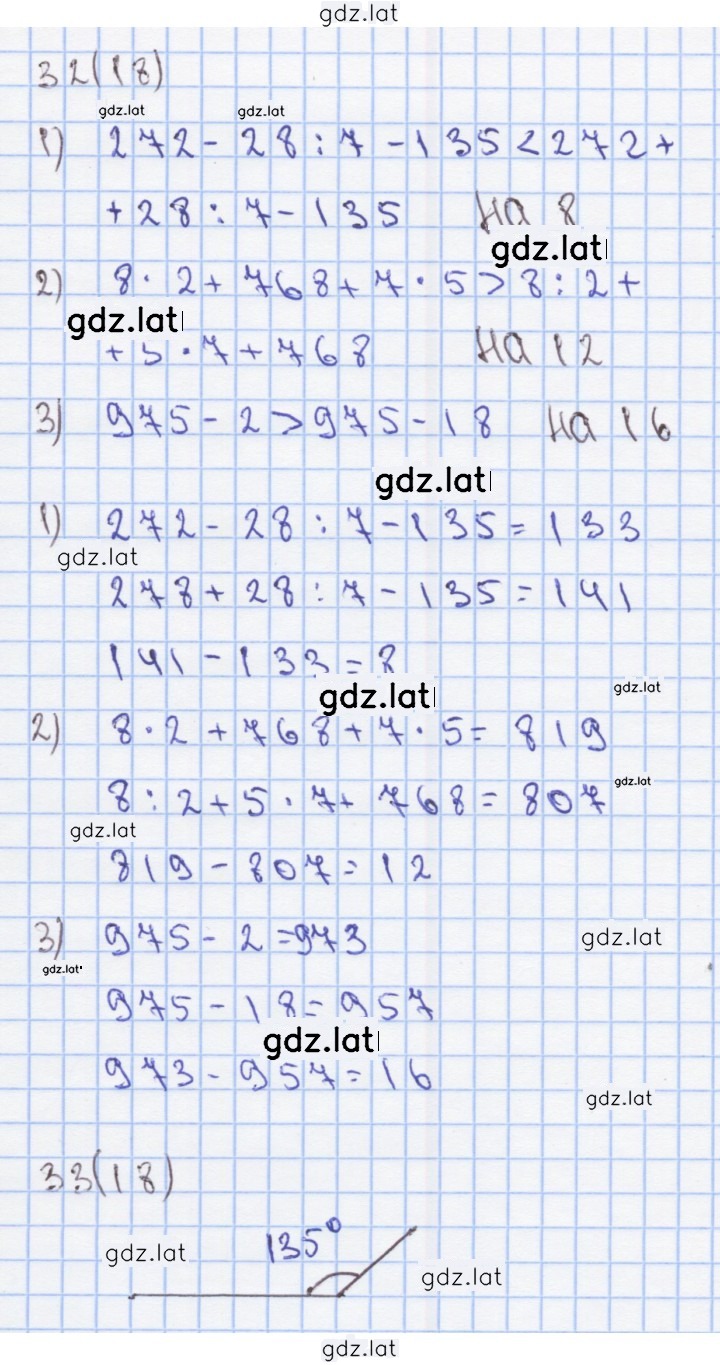 gdz.lat
32(18)
gdz.lat gdz.lat
1) 272 - 28 : 7 - 135 < 272 +
+ 28 : 7 - 135 на 8
gdz.lat
2) 8 · 2 + 768 + 7 · 5 > 8 : 2 +
gdz.lat
+ 5 · 7 + 768 на 12
3) 975 - 2 > 975 - 18 на 16
gdz.lat
1) 272 - 28 : 7 - 135 = 133
gdz.lat
278 + 28 : 7 - 135 = 141
141 - 133 = 8
gdz.lat gdz.lat
2) 8 · 2 + 768 + 7 · 5 = 819
8 : 2 + 5 · 7 + 768 = 807 gdz.lat
gdz.lat
819 - 807 = 12
3) 975 - 2 = 973 gdz.lat
gdz.lat
975 - 18 = 957
gdz.lat
973 - 957 = 16
gdz.lat
33(18)
135°
gdz.lat
gdz.lat
gdz.lat